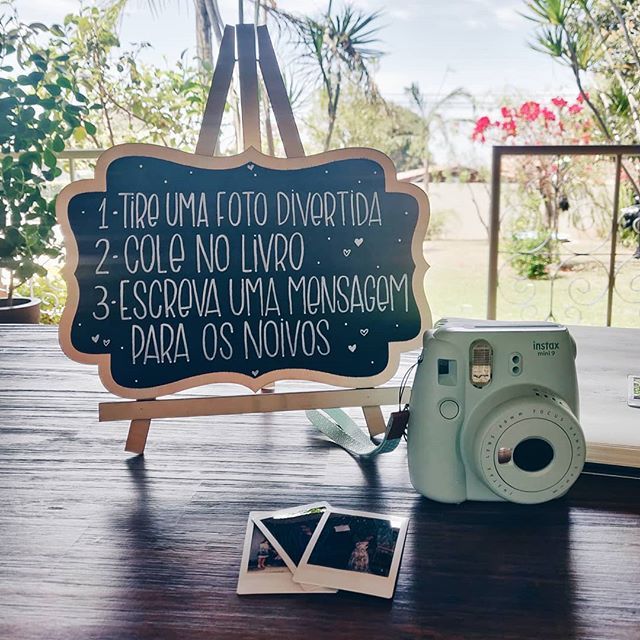 1-TIRE UMA FOTO DIVERTIDA
2-COLE NO LIVRO
3-ESCREVA UMA MENSAGEM
PARA OS NOIVOS
instax
mini 9